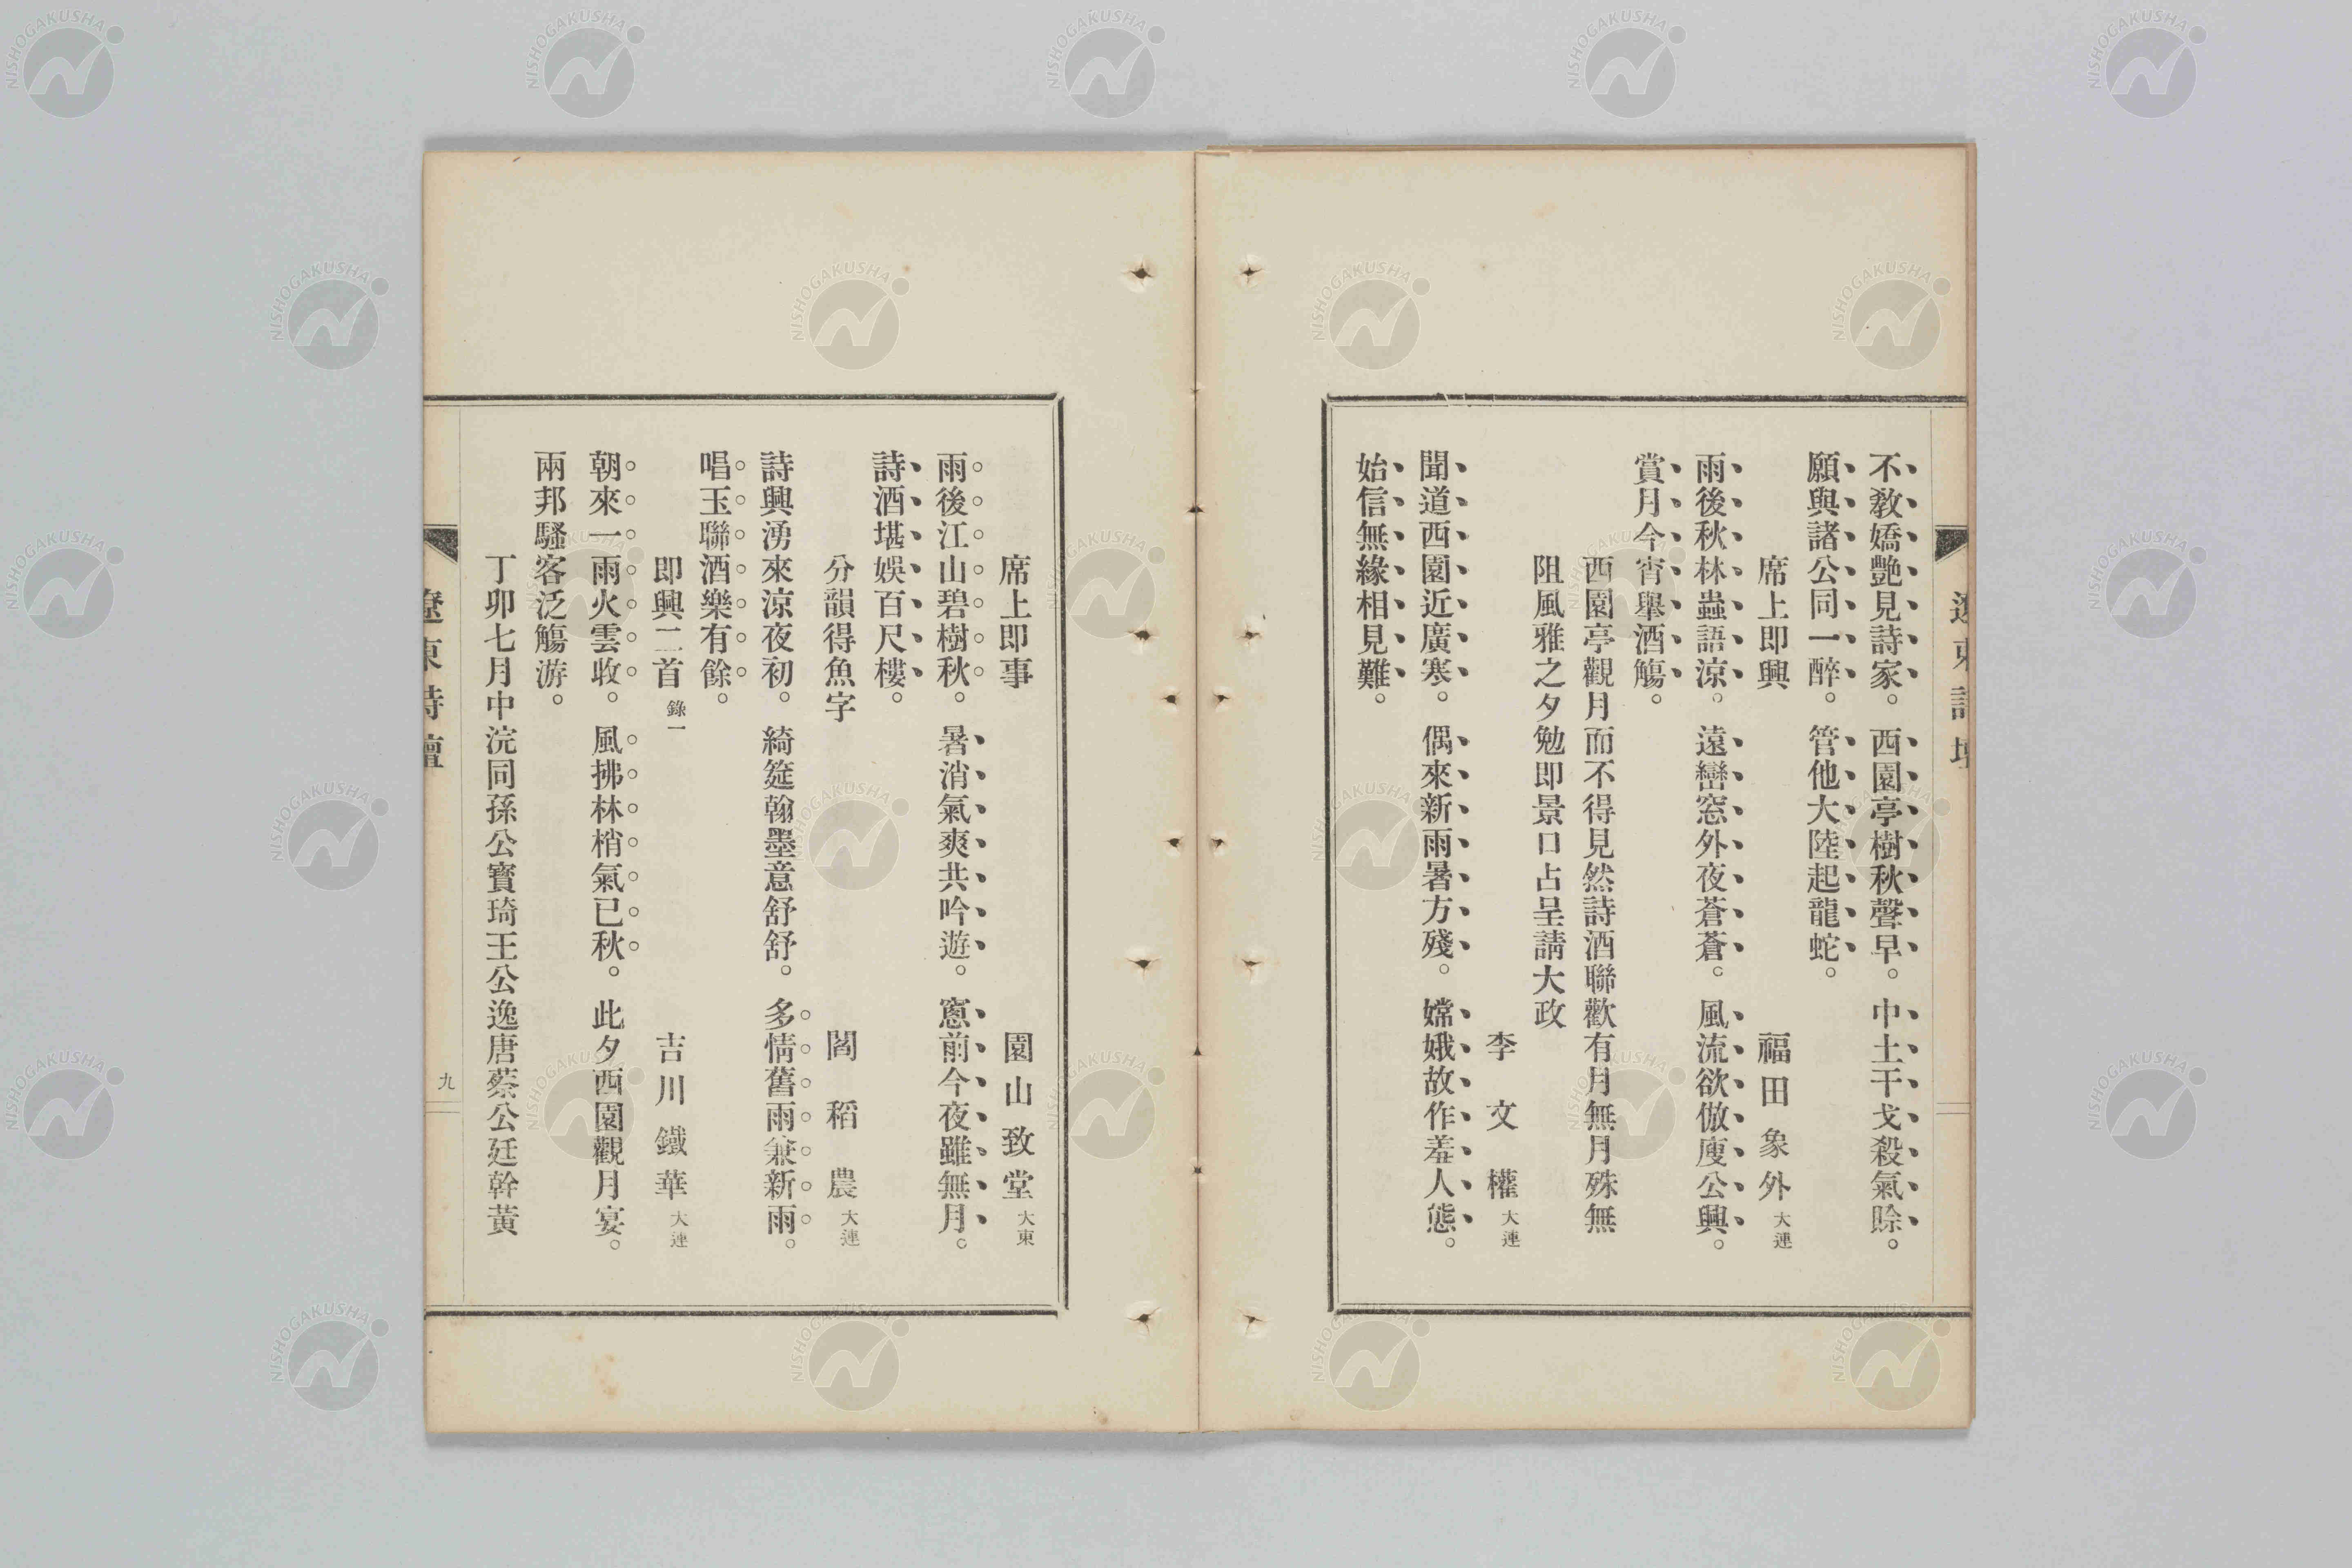 不教嬌艷見詩家。西園亭樹秋聲早。中土干戈殺氣賒。
願與諸公同一醉。管他大陸起龍蛇。
席上即興　福田象外 大連
雨後秋林蟲語涼。遠巒窓外夜蒼蒼。風流欲倣庾公興。
賞月今宵擧酒觴。
西園亭觀月而不得見然詩酒聯歡有月無月殊無
阻風雅之夕勉即景口占呈請大政
李文權 大連
聞道西園近廣寒。偶來新雨暑方殘。嫦娥故作羞人態。
始信無緣相見難。
席上即事　園山致堂 大東
雨後江山碧樹秋。暑消氣爽共吟遊。窻前今夜雖無月。
詩酒堪娛百尺樓。
分韻得魚字　閻稻農 大連
詩興湧來涼夜初。綺筵翰墨意舒舒。多情舊雨兼新雨。
唱玉聯酒樂有餘。
即興二首 錄一　吉川鐵華 大連
朝來一雨火雲收。風拂林梢氣已秋。此夕西園觀月宴。
兩邦騷客泛觴游。
丁卯七月中浣同孫公寶琦王公逸唐蔡公廷幹黃
遼東詩壇
九
NISHOGAKUSHA